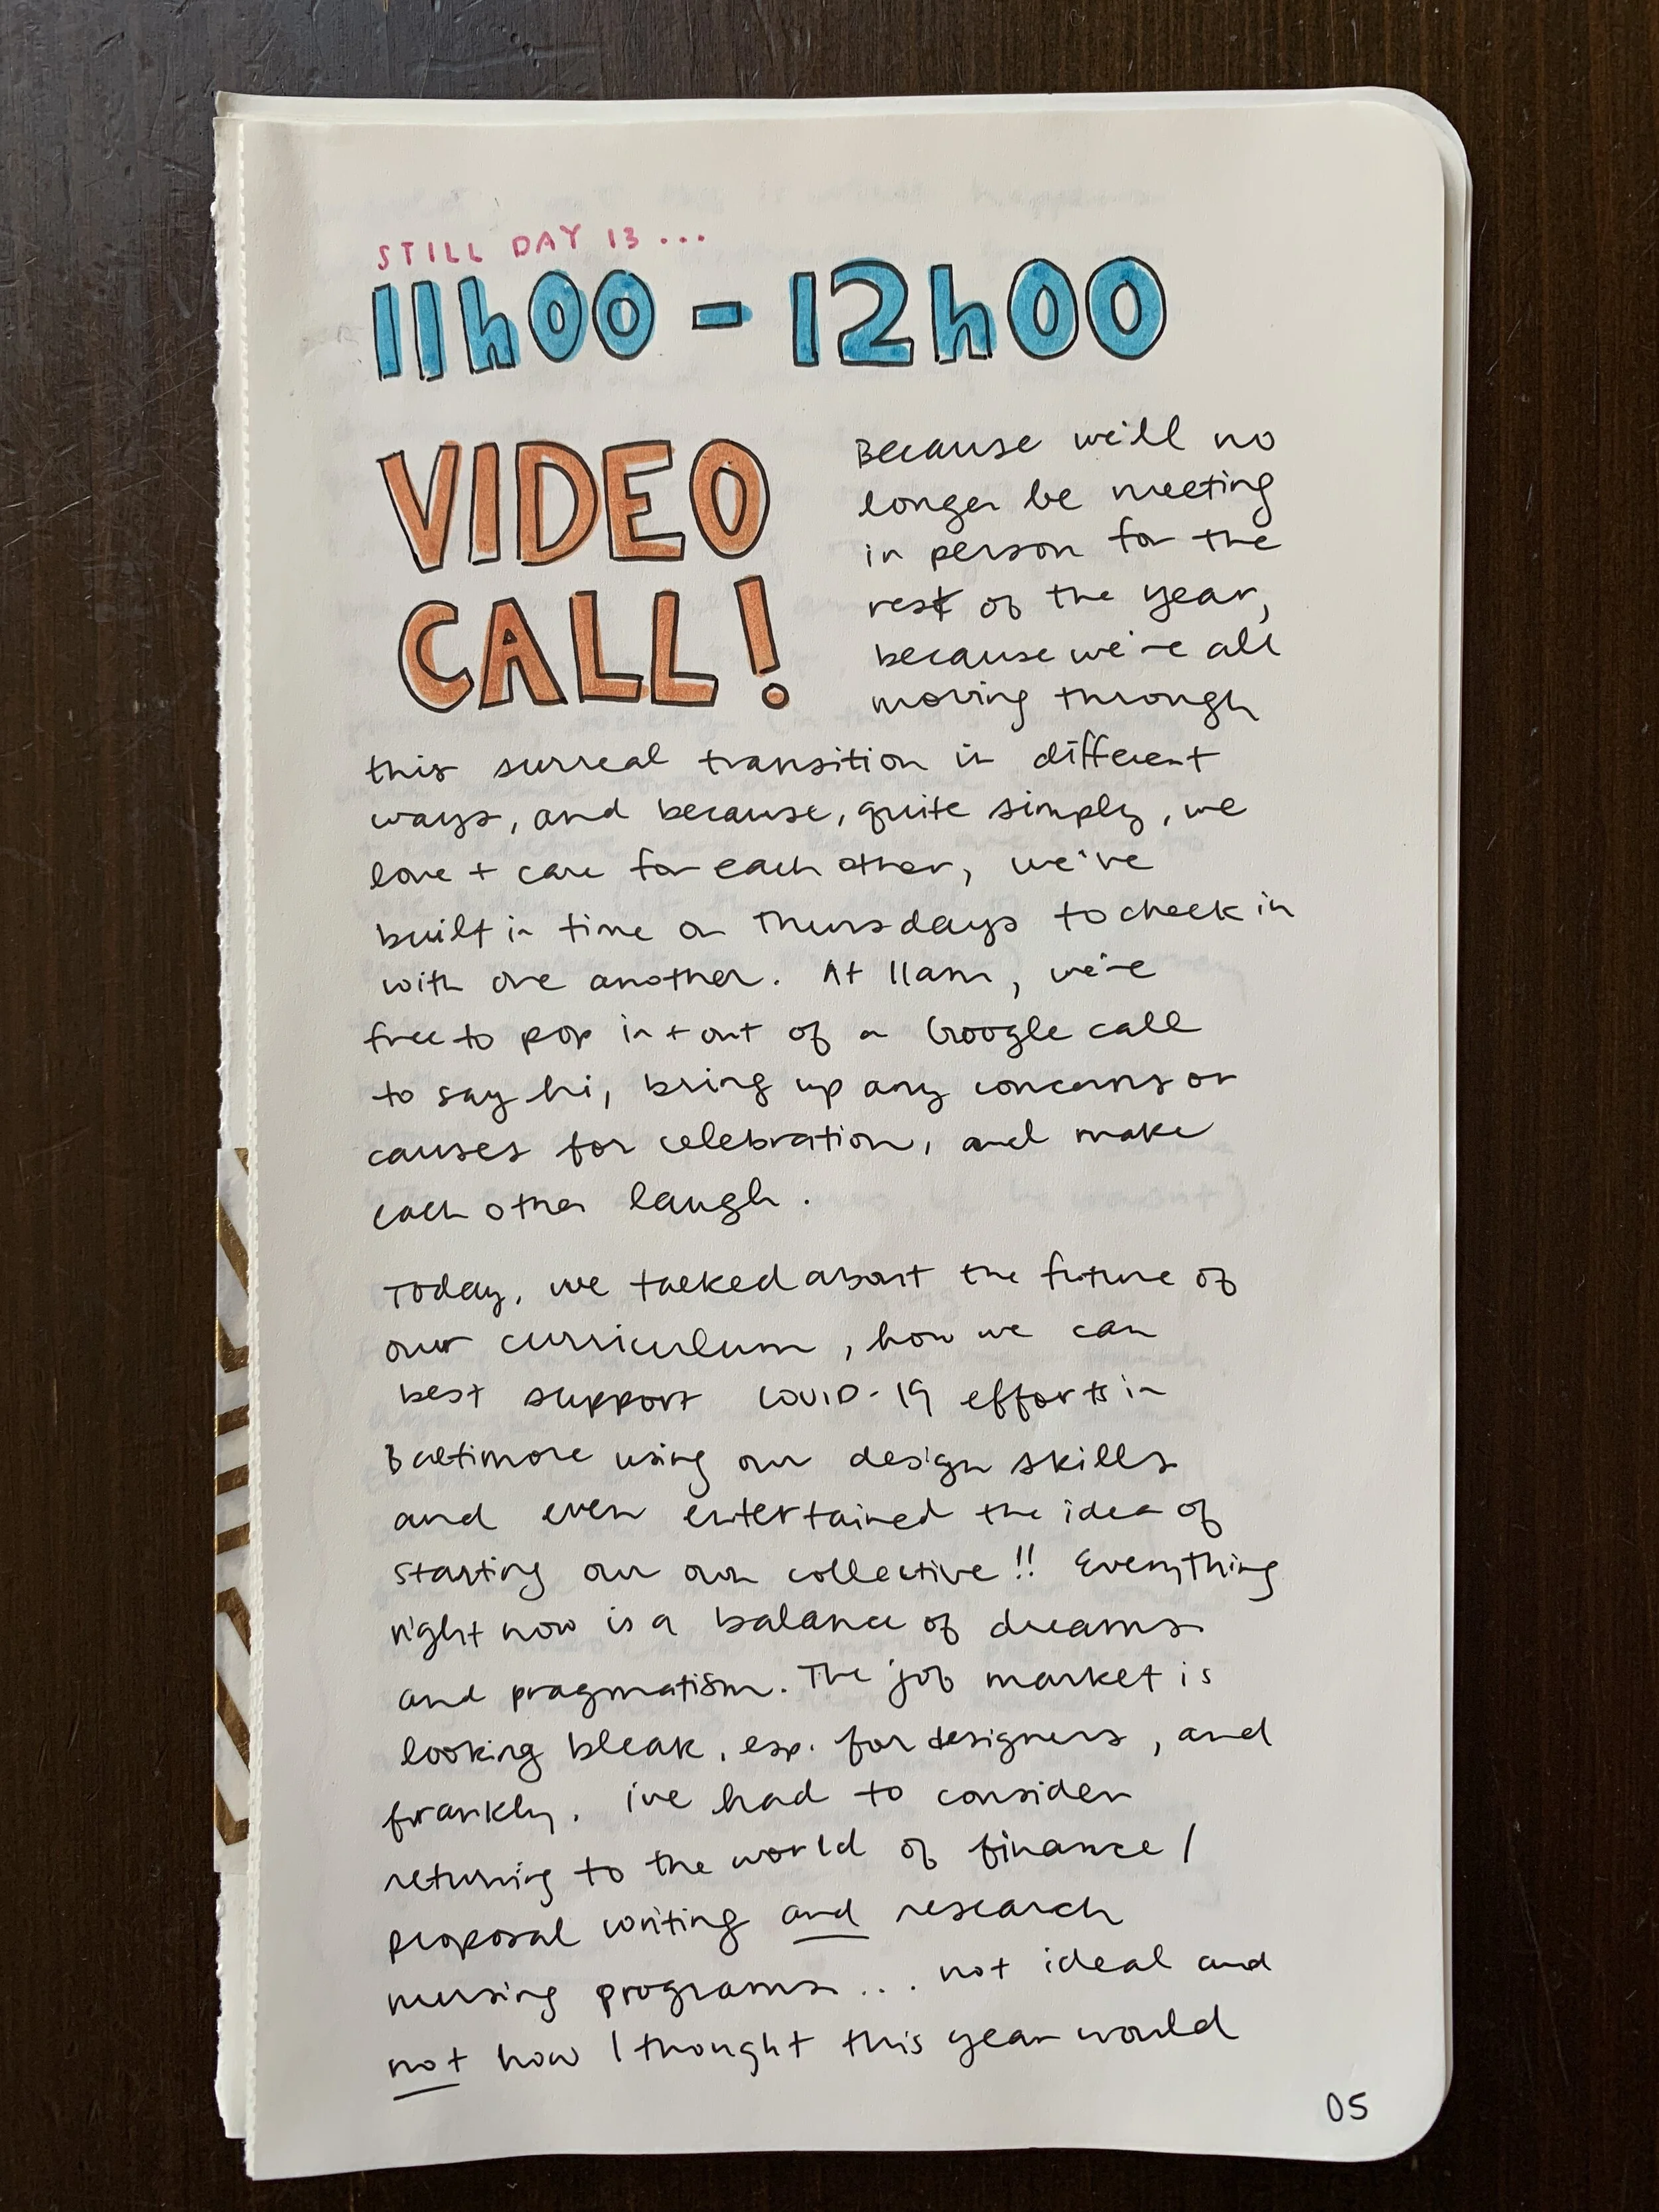 STILL DAY 13...
11h00 - 12h00
VIDEO
CALL!
Because we'll no
longer be meeting
in person for the
rest of the year,
because we're all
moving through
this surreal transition in different
ways, and because, quite simply, we
love + care for each other, we've
built in time on Thursdays to check in
with one another. At 11am, we're
free to pop in + out of a Google call
to say hi, bring up any concerns or
causes for celebration, and make
each other laugh.
Today, we talked about the future of
our curriculum, how we can
best support COVID-19 efforts in
Baltimore using our design skills
and even entertained the idea of
starting our own collective!! Everything
right now is a balance of dreams
and pragmatism. The job market is
looking bleak, esp. for designers, and
frankly, i've had to consider
returning to the world of finance/
proposal writing and research
nursing programs... not ideal and
not how I thought this year would
05